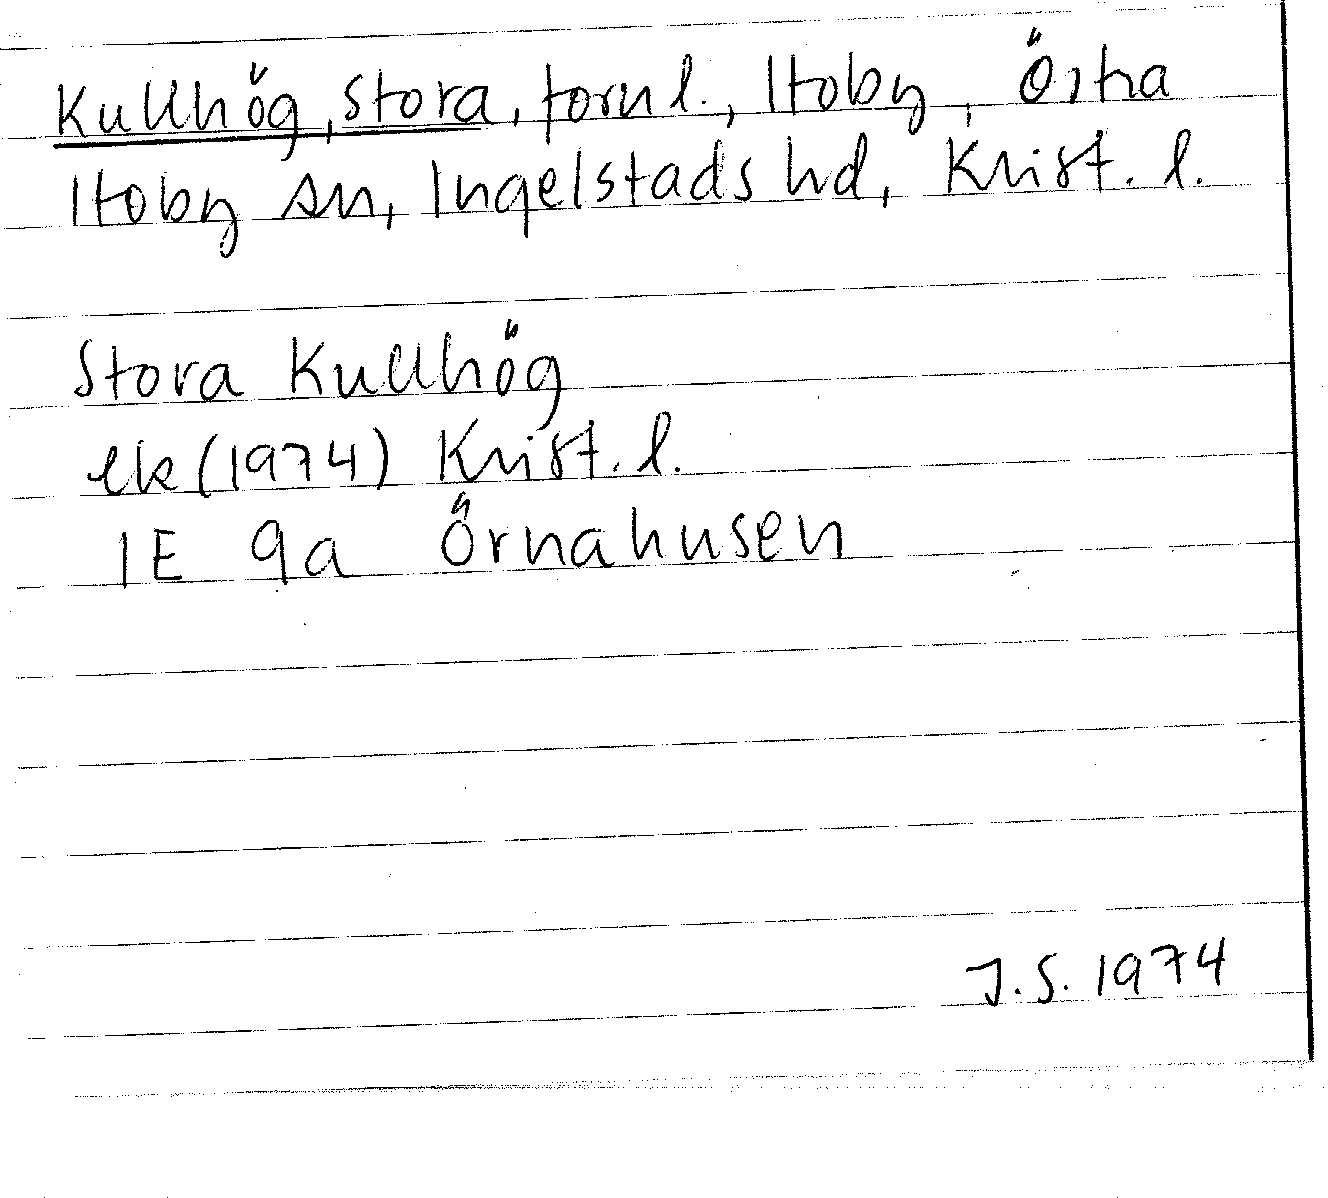 Kullhög, Stora, fornl., Hoby, Östra
Hoby sn, Ingelstads hd, Krist. l.
Stora Kullhög
ek (1974) Krist. l.
1E 9a Örnahusen
J.S. 1974